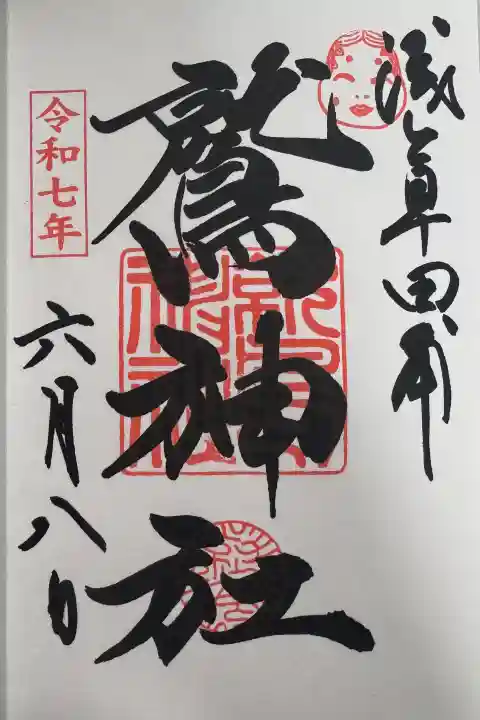 浅草田甫
鷲神社
令和七年
六月八日